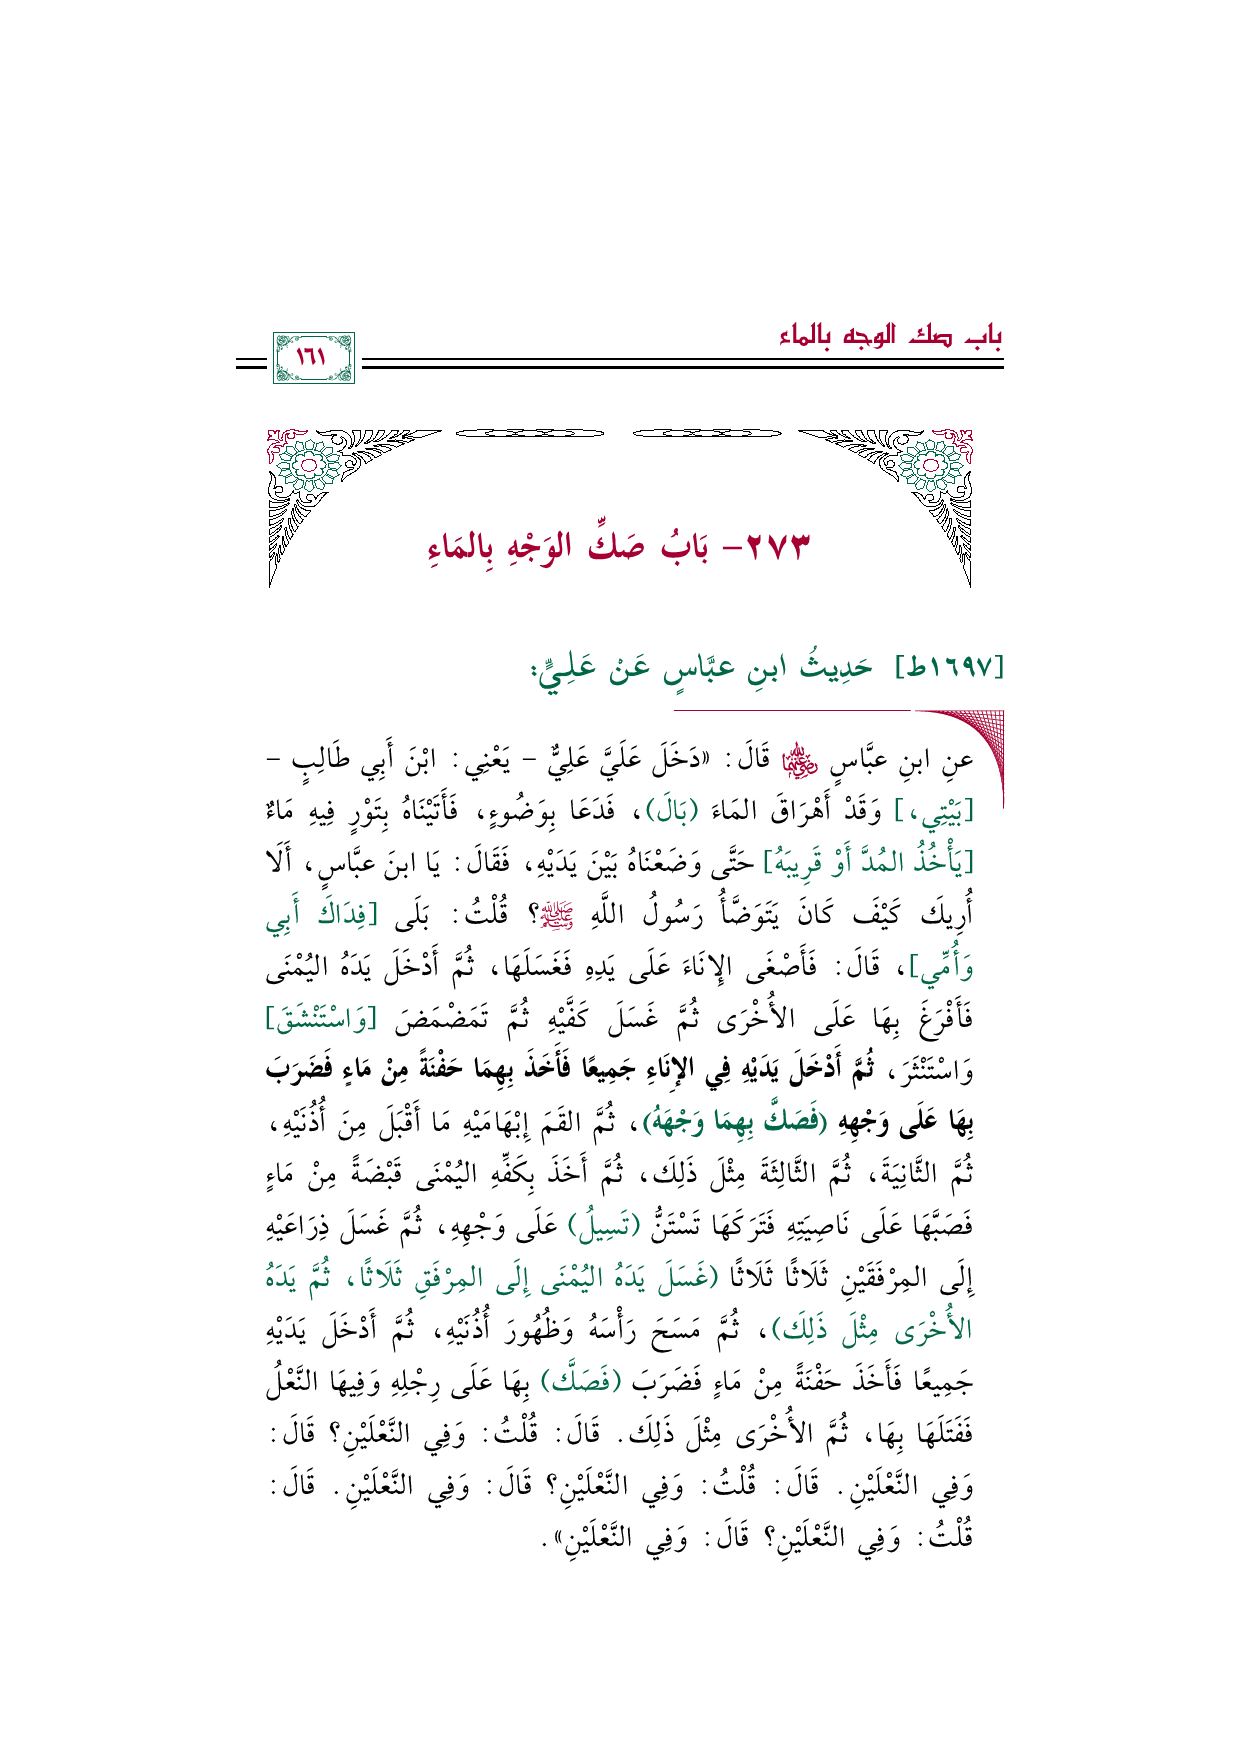 باب صك الوجه بالماء
١٦١
٢٧٣- بَابُ صَكِّ الوَجْهِ بِالمَاءِ
[١٦٩٧ط] حَدِيثُ ابنِ عبَّاسٍ عَنْ عَلِيٍّ:
عنِ ابنِ عبَّاسٍ ﵄ قَالَ: «دَخَلَ عَلَيَّ عَلِيٌّ - يَعْنِي: ابْنَ أَبِي طَالِبٍ -
[بَيْتِي،] وَقَدْ أَهْرَاقَ المَاءَ (بَالَ)، فَدَعَا بِوَضُوءٍ، فَأَتَيْنَاهُ بِتَوْرٍ فِيهِ مَاءٌ
[يَأْخُذُ المُدَّ أَوْ قَرِيبَهُ] حَتَّى وَضَعْنَاهُ بَيْنَ يَدَيْهِ، فَقَالَ: يَا ابنَ عبَّاسٍ، أَلَا
أُرِيكَ كَيْفَ كَانَ يَتَوَضَّأُ رَسُولُ اللَّهِ ﷺ؟ قُلْتُ: بَلَى [فِدَاكَ أَبِي
وَأُمِّي]، قَالَ: فَأَصْغَى الإِنَاءَ عَلَى يَدِهِ فَغَسَلَهَا، ثُمَّ أَدْخَلَ يَدَهُ اليُمْنَى
فَأَفْرَغَ بِهَا عَلَى الأُخْرَى ثُمَّ غَسَلَ كَفَّيْهِ ثُمَّ تَمَضْمَضَ [وَاسْتَنْشَقَ]
وَاسْتَنْثَرَ، ثُمَّ أَدْخَلَ يَدَيْهِ فِي الإِنَاءِ جَمِيعًا فَأَخَذَ بِهِمَا حَفْنَةً مِنْ مَاءٍ فَضَرَبَ
بِهَا عَلَى وَجْهِهِ (فَصَكَّ بِهِمَا وَجْهَهُ)، ثُمَّ القَمَ إِبْهَامَيْهِ مَا أَقْبَلَ مِنَ أُذُنَيْهِ،
ثُمَّ الثَّانِيَةَ، ثُمَّ الثَّالِثَةَ مِثْلَ ذَلِكَ، ثُمَّ أَخَذَ بِكَفِّهِ اليُمْنَى قَبْضَةً مِنْ مَاءٍ
فَصَبَّهَا عَلَى نَاصِيَتِهِ فَتَرَكَهَا تَسْتَنُّ (تَسِيلُ) عَلَى وَجْهِهِ، ثُمَّ غَسَلَ ذِرَاعَيْهِ
إِلَى المِرْفَقَيْنِ ثَلَاثًا ثَلَاثًا (غَسَلَ يَدَهُ اليُمْنَى إِلَى المِرْفَقِ ثَلَاثًا، ثُمَّ يَدَهُ
الأُخْرَى مِثْلَ ذَلِكَ)، ثُمَّ مَسَحَ رَأْسَهُ وَظُهُورَ أُذُنَيْهِ، ثُمَّ أَدْخَلَ يَدَيْهِ
جَمِيعًا فَأَخَذَ حَفْنَةً مِنْ مَاءٍ فَضَرَبَ (فَصَكَّ) بِهَا عَلَى رِجْلِهِ وَفِيهَا النَّعْلُ
فَفَتَلَهَا بِهَا، ثُمَّ الأُخْرَى مِثْلَ ذَلِكَ. قَالَ: قُلْتُ: وَفِي النَّعْلَيْنِ؟ قَالَ:
وَفِي النَّعْلَيْنِ. قَالَ: قُلْتُ: وَفِي النَّعْلَيْنِ؟ قَالَ: وَفِي النَّعْلَيْنِ. قَالَ:
قُلْتُ: وَفِي النَّعْلَيْنِ؟ قَالَ: وَفِي النَّعْلَيْنِ».